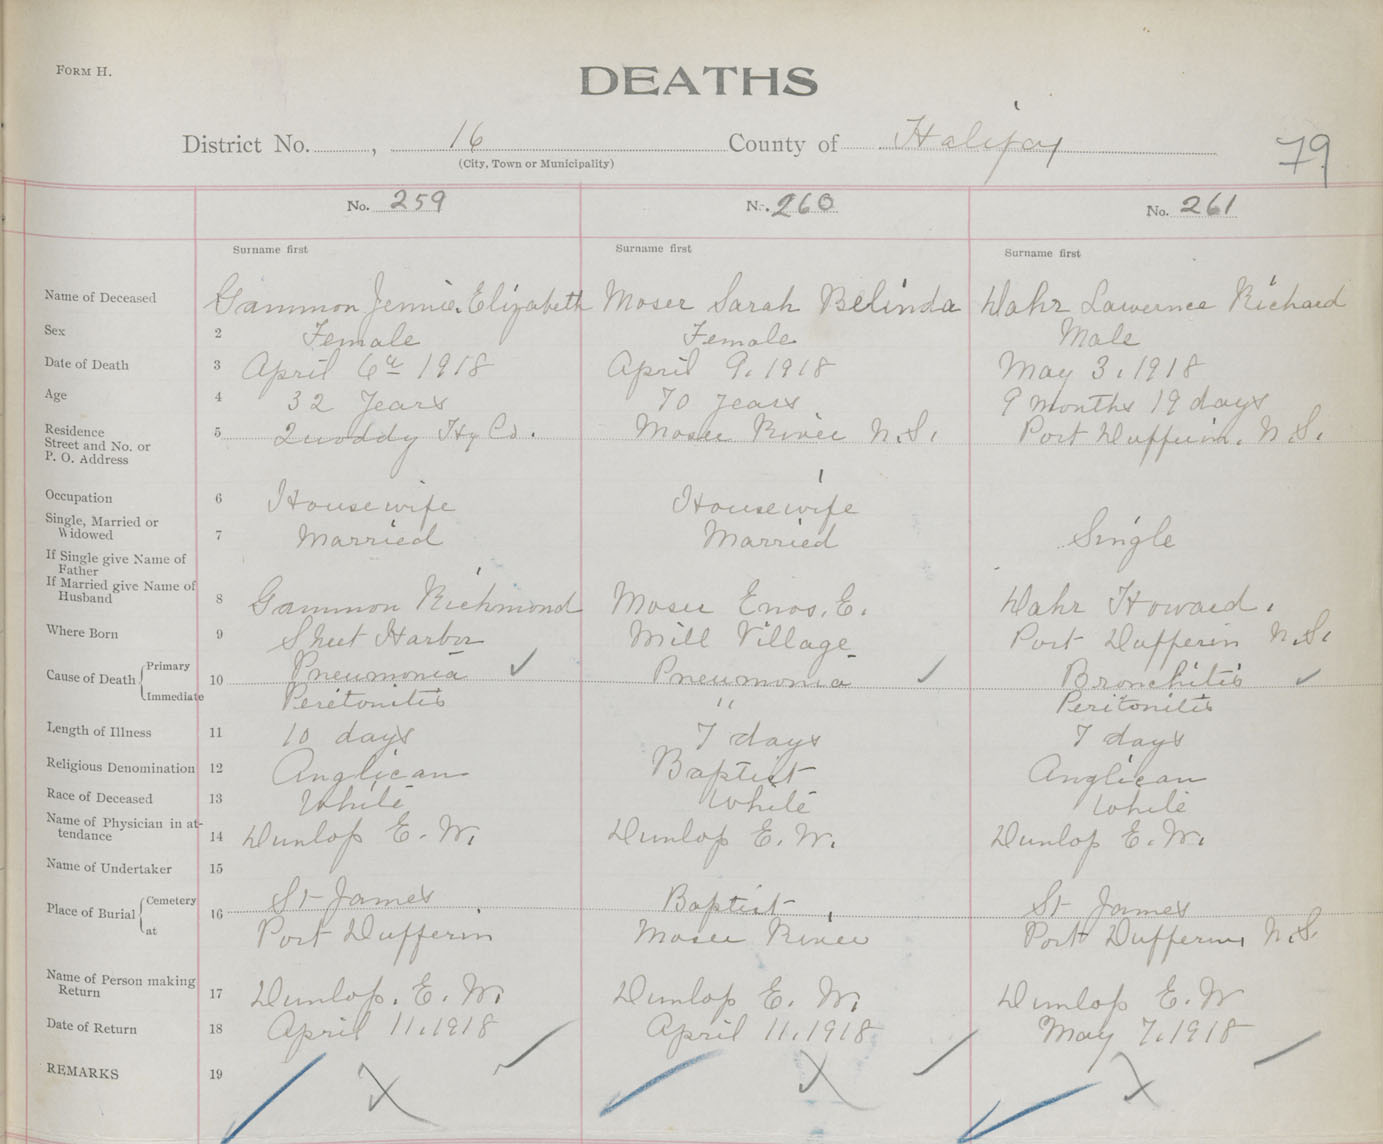 FORM H.
DEATHS
District No. , 16 County of Halifax
(City, Town or Municipality)
79
No. 259 No. 260 No. 261
Surname first Surname first Surname first
Name of Deceased Gammon Jennie Elizabeth Moser Sarah Belinda Wahr Lawernce Richard
Sex 2 Female Female Male
Date of Death 3 April 6th 1918 April 9. 1918 May 3. 1918
Age 4 32 Years 70 years 9 months 19 days
Residence
Street and No. or
P. O. Address 5 Quoddy Hx Co. Moser River N.S. Port Dufferin. N.S.
Occupation 6 Housewife Housewife
Single, Married or
Widowed 7 Married Married Single
If Single give Name of
Father
If Married give Name of
Husband 8 Gammon Richmond Moser Enos. E. Wahr Howard.
Where Born 9 Sheet Harbor Mill Village Port Dufferin N.S.
Cause of Death Primary 10 Pneumonia ✓ Pneumonia ✓ Bronchitis ✓
Immediate Peritonitis " Peritonitis
Length of Illness 11 10 days 7 days 7 days
Religious Denomination 12 Anglican Baptist Anglican
Race of Deceased 13 White White White
Name of Physician in at-
tendance 14 Dunlop E. W. Dunlop E. W. Dunlop E. W.
Name of Undertaker 15
Place of Burial Cemetery 16 St James Baptist St James
at Port Dufferin Moser River Port Dufferin, N.S
Name of Person making
Return 17 Dunlop. E. W. Dunlop E. W. Dunlop E. W
Date of Return 18 April 11. 1918 April 11. 1918 May 7. 1918
REMARKS 19 X X X